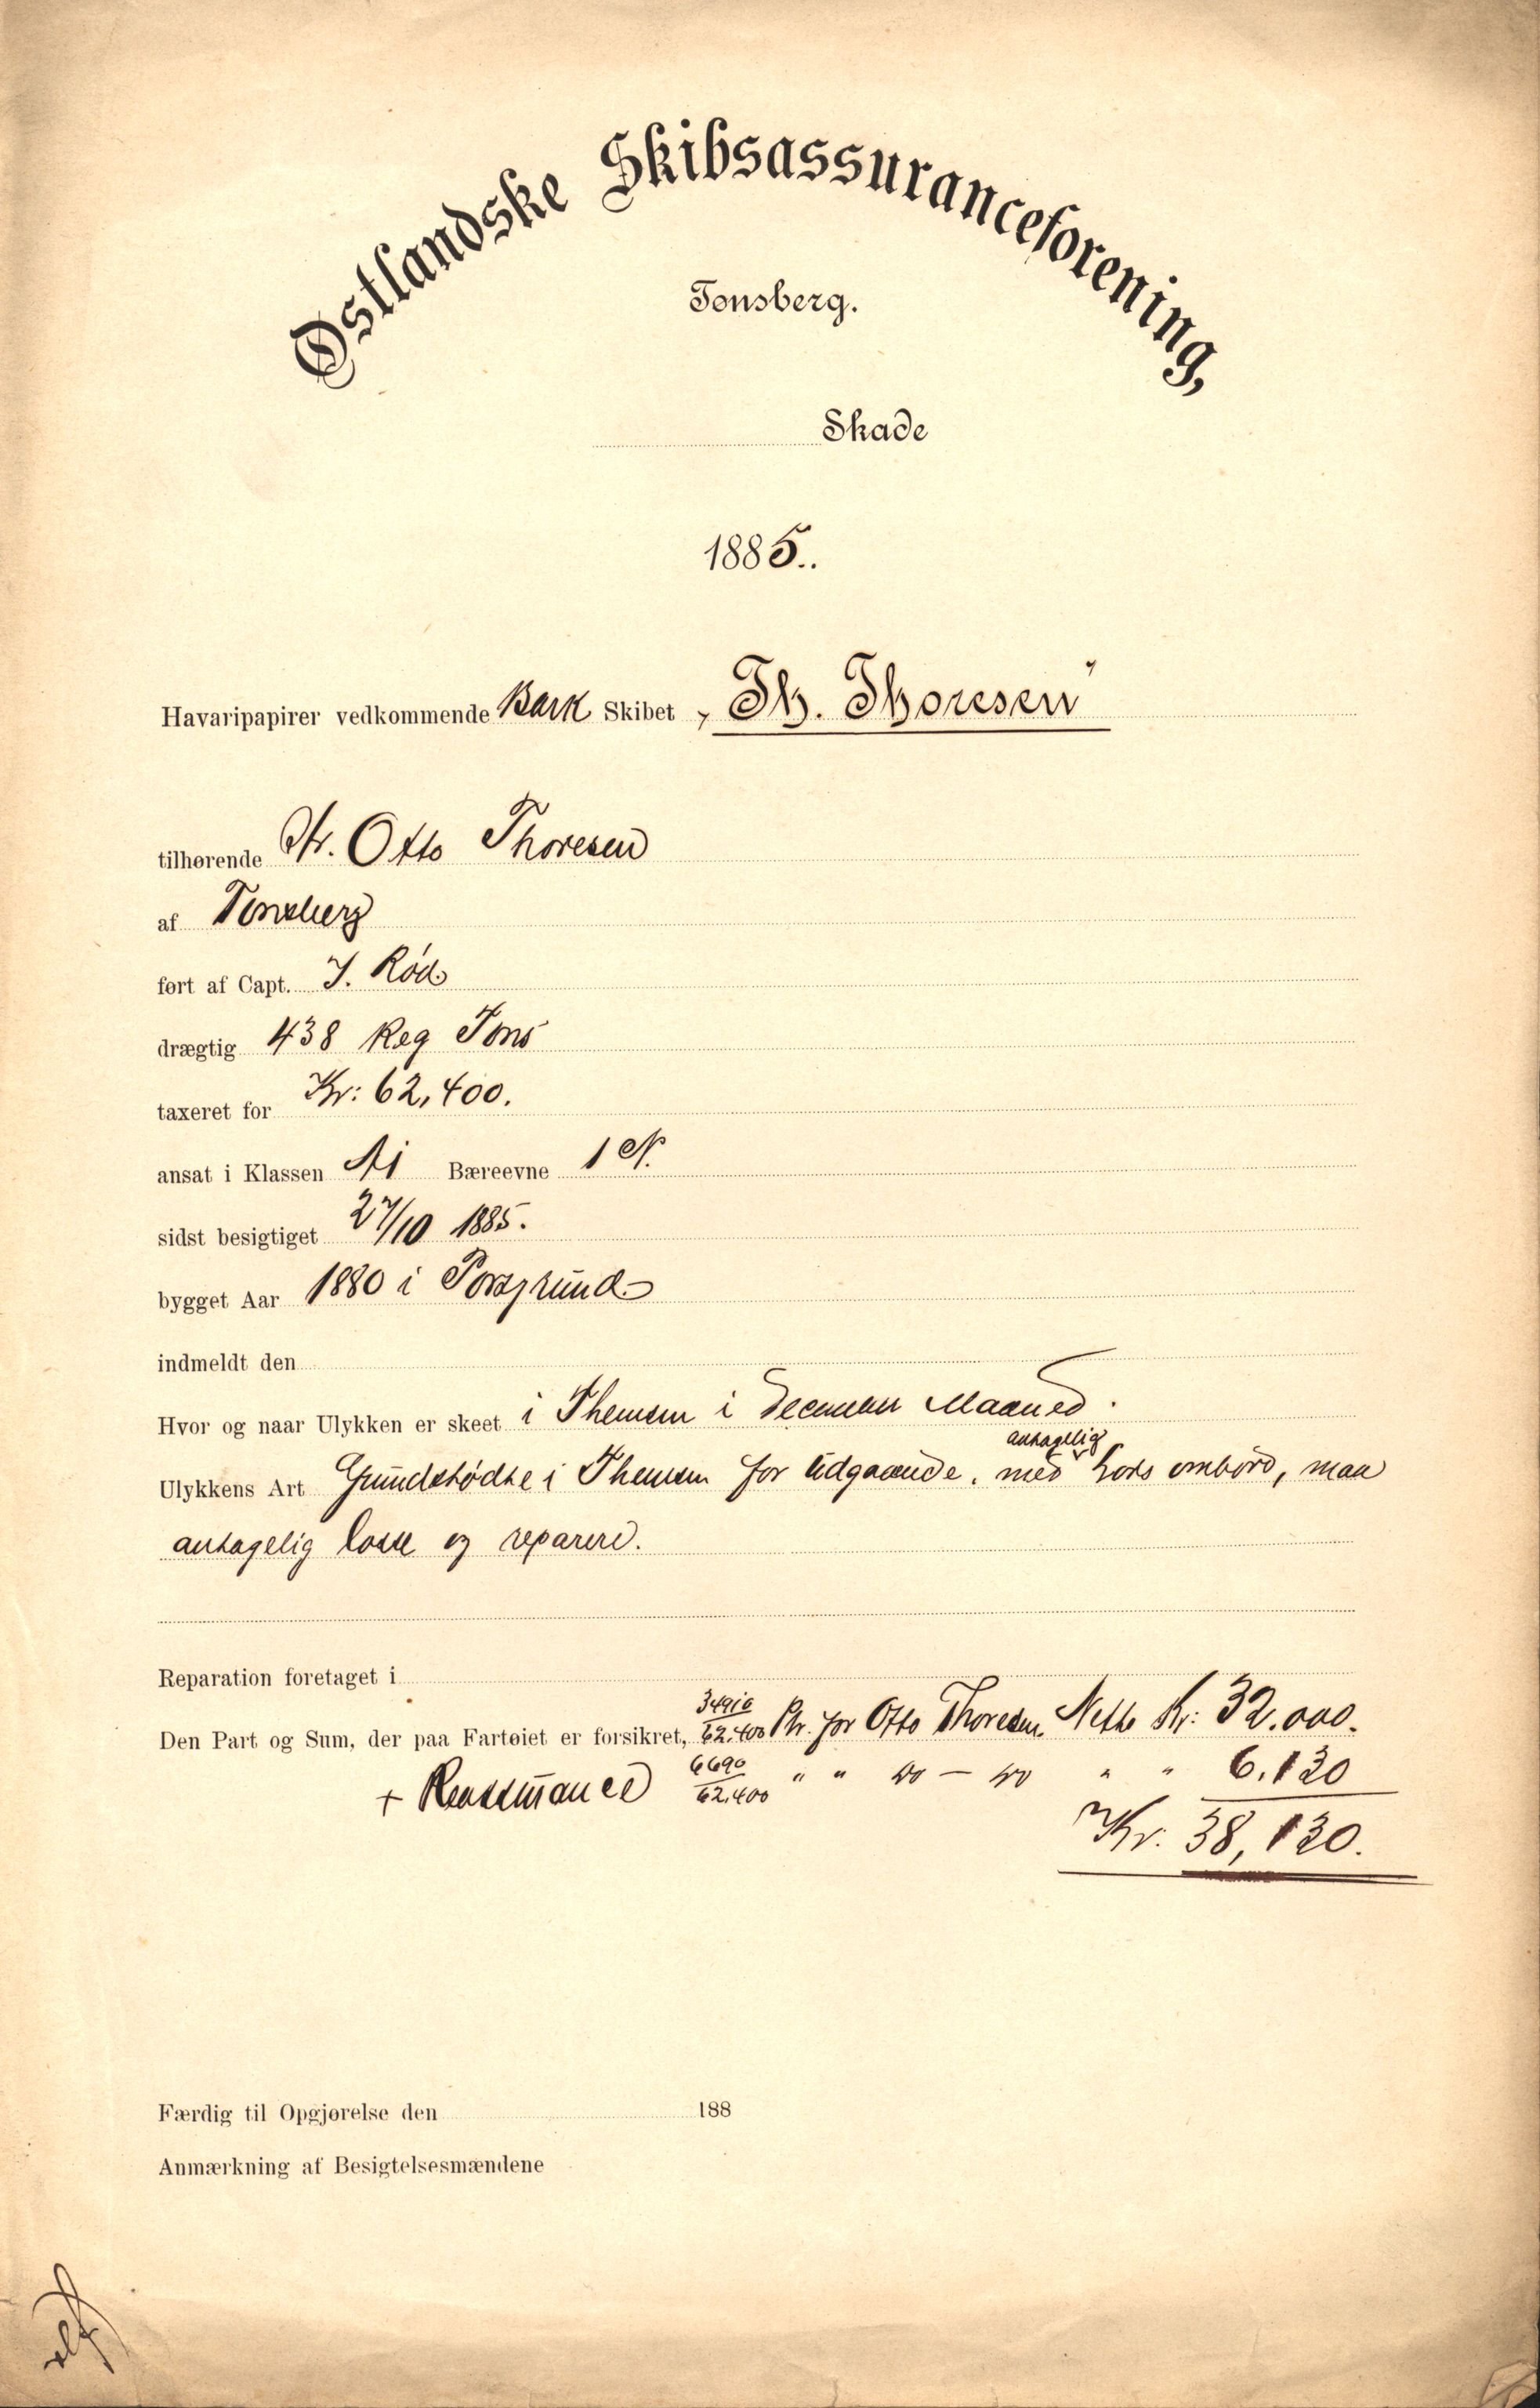 Østlandske Skibsassuranceforening,
Tønsberg.
Skade
1885.
Havaripapirer vedkommende Bark Skibet „Th. Thoresen"
tilhørende Hr. Otto Thoresen
af Tønsberg
ført af Capt. J. Rød
drægtig 438 Reg Tons
taxeret for Kr: 62,400.
ansat i Klassen A1 Bæreevne 1 N.
sidst besigtiget 27/10 1885.
bygget Aar 1880 i Porsgrund
indmeldt den
Hvor og naar Ulykken er skeet i Themsen i Decmber Maaned.
antagelig
Ulykkens Art Grundstødte i Themsen for Udgaaende. med Lods ombord, maa
antagelig losse og reparere.
Reparation foretaget i
Den Part og Sum, der paa Fartøiet er forsikret, 34910/62.400 Pr. for Otto Thoresen Netto Kr: 32.000.
+ Reassurance 6690/62.400 " " do — do " " 6.130
Kr. 38,130.
Færdig til Opgjørelse den 188
Anmærkning af Besigtelsesmændene